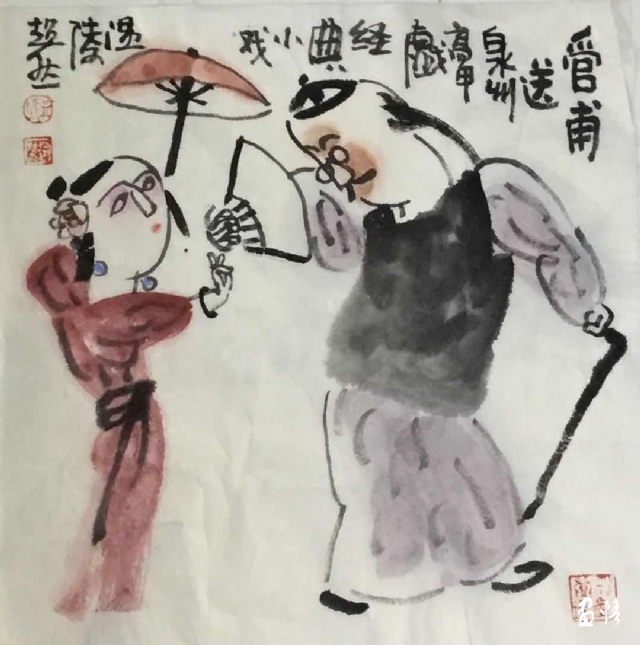 管甫
送
泉州
高甲
戲
经典小戏
温陵
超然